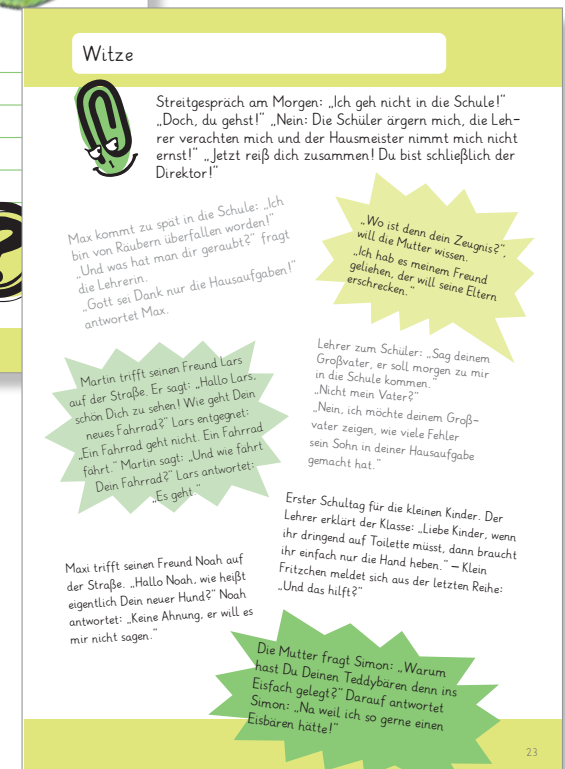 Witze
Streitgespräch am Morgen: „Ich geh nicht in die Schule!"
„Doch, du gehst!" „Nein: Die Schüler ärgern mich, die Leh-
rer verachten mich und der Hausmeister nimmt mich nicht
ernst!" „Jetzt reiß dich zusammen! Du bist schließlich der
Direktor!"
Max kommt zu spät in die Schule: „Ich
bin von Räubern überfallen worden!"
„Und was hat man dir geraubt?" fragt
die Lehrerin.
„Gott sei Dank nur die Hausaufgaben!"
antwortet Max.
„Wo ist denn dein Zeugnis?",
will die Mutter wissen.
„Ich hab es meinem Freund
geliehen, der will seine Eltern
erschrecken."
Martin trifft seinen Freund Lars
auf der Straße. Er sagt: „Hallo Lars,
schön Dich zu sehen! Wie geht Dein
neues Fahrrad?" Lars entgegnet:
„Ein Fahrrad geht nicht. Ein Fahrrad
fährt." Martin sagt: „Und wie fährt
Dein Fahrrad?" Lars antwortet:
„Es geht."
Lehrer zum Schüler: „Sag deinem
Großvater, er soll morgen zu mir
in die Schule kommen."
„Nicht mein Vater?"
„Nein, ich möchte deinem Groß-
vater zeigen, wie viele Fehler
sein Sohn in deiner Hausaufgabe
gemacht hat."
Erster Schultag für die kleinen Kinder. Der
Lehrer erklärt der Klasse: „Liebe Kinder, wenn
ihr dringend auf Toilette müsst, dann braucht
ihr einfach nur die Hand heben." – Klein
Fritzchen meldet sich aus der letzten Reihe:
„Und das hilft?"
Maxi trifft seinen Freund Noah auf
der Straße. „Hallo Noah, wie heißt
eigentlich Dein neuer Hund?" Noah
antwortet: „Keine Ahnung, er will es
mir nicht sagen."
Die Mutter fragt Simon: „Warum
hast Du Deinen Teddybären denn ins
Eisfach gelegt?" Darauf antwortet
Simon: „Na weil ich so gerne einen
Eisbären hätte!"
23